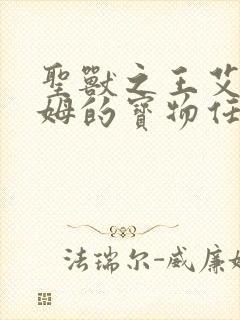 聖獸之王艾
姆的寶物任
法瑞尔-威廉姆